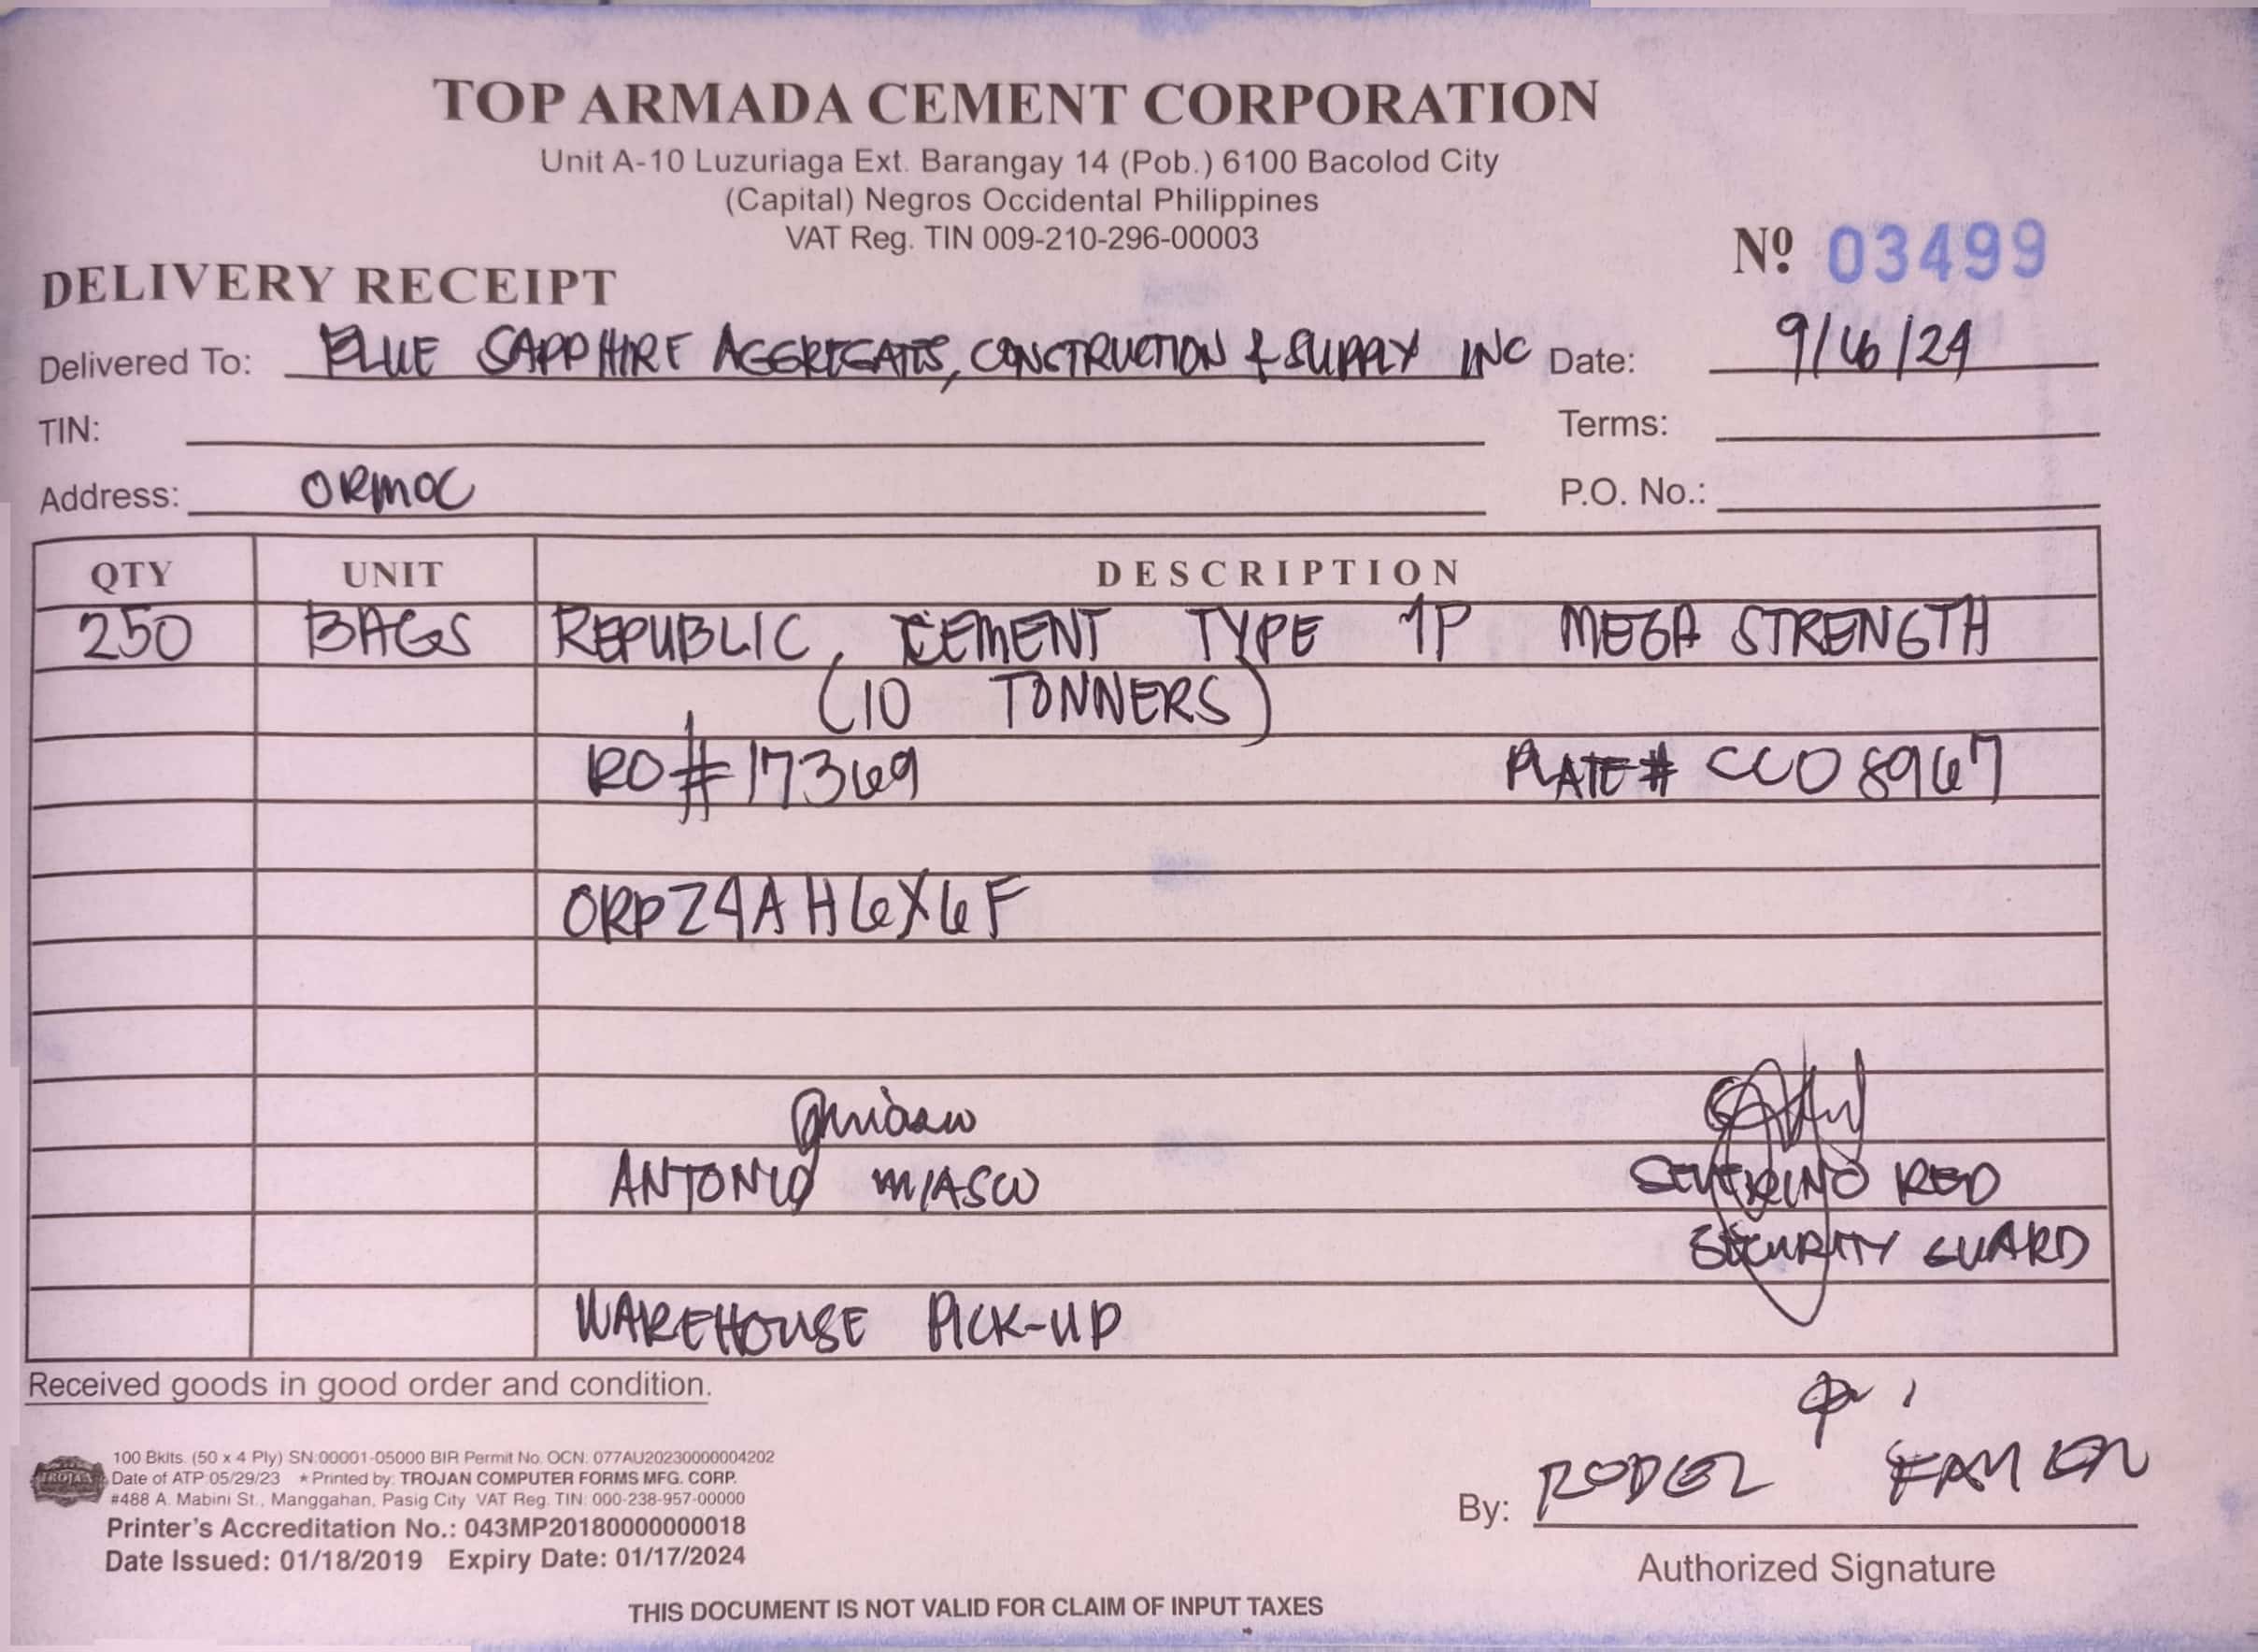 TOP ARMADA CEMENT CORPORATION
Unit A-10 Luzuriaga Ext. Barangay 14 (Pob.) 6100 Bacolod City
(Capital) Negros Occidental Philippines
VAT Reg. TIN 009-210-296-00003
Nº 03499
DELIVERY RECEIPT
Delivered To: BLUE SAPPHIRE AGGREGATES, CONSTRUCTION & SUPPLY INC Date: 9/6/24
TIN: Terms:
Address: ORMOC P.O. No.:
QTY UNIT DESCRIPTION
250 BAGS REPUBLIC, CEMENT TYPE 1P MEGA STRENGTH
(10 TONNERS)
RO# 17369 PLATE# CCO 8967
ORPZ4AH6X6F
ANTONIO MIASCO SEVERINO RED
SECURITY GUARD
WAREHOUSE PICK-UP
Received goods in good order and condition.
100 Bklts. (50 x 4 Ply) SN:00001-05000 BIR Permit No. OCN: 077AU20230000004202
TROJAN Date of ATP:05/29/23 * Printed by: TROJAN COMPUTER FORMS MFG. CORP.
#488 A. Mabini St., Manggahan, Pasig City VAT Reg. TIN: 000-238-957-00000
Printer's Accreditation No.: 043MP20180000000018
Date Issued: 01/18/2019 Expiry Date: 01/17/2024
By: RODEL
Authorized Signature
THIS DOCUMENT IS NOT VALID FOR CLAIM OF INPUT TAXES